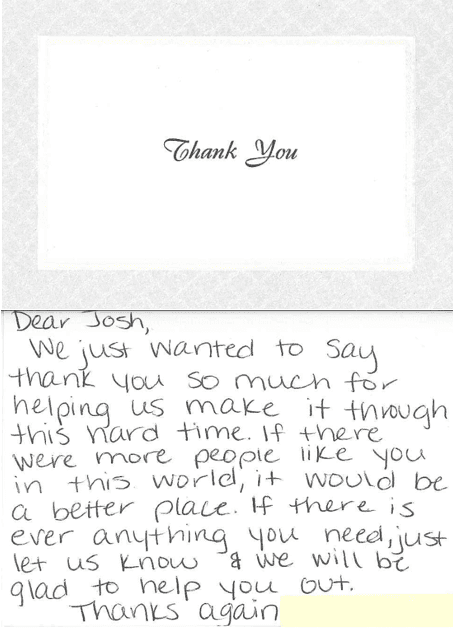 Thank You
Dear Josh,
We just wanted to say
thank you so much for
helping us make it through
this hard time. If there
were more people like you
in this world, it would be
a better place. If there is
ever anything you need, just
let us know & we will be
glad to help you out.
Thanks again